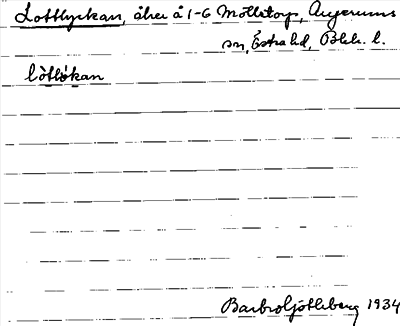 Lottlyckan, åker å 1-6 Mollstorp, Augerums
sn, Östra hd, Blek. l.
lòtløkan
Barbro Ljötleberg 1934